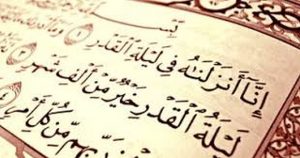 إِنَّا أَنزَلْنَٰهُ فِي لَيْلَةِ الْقَدْرِ ١
لَيْلَةُ الْقَدْرِ خَيْرٌ مِّنْ أَلْفِ شَهْرٍ ٣
مِّن كُلِّ أَمْرٍ